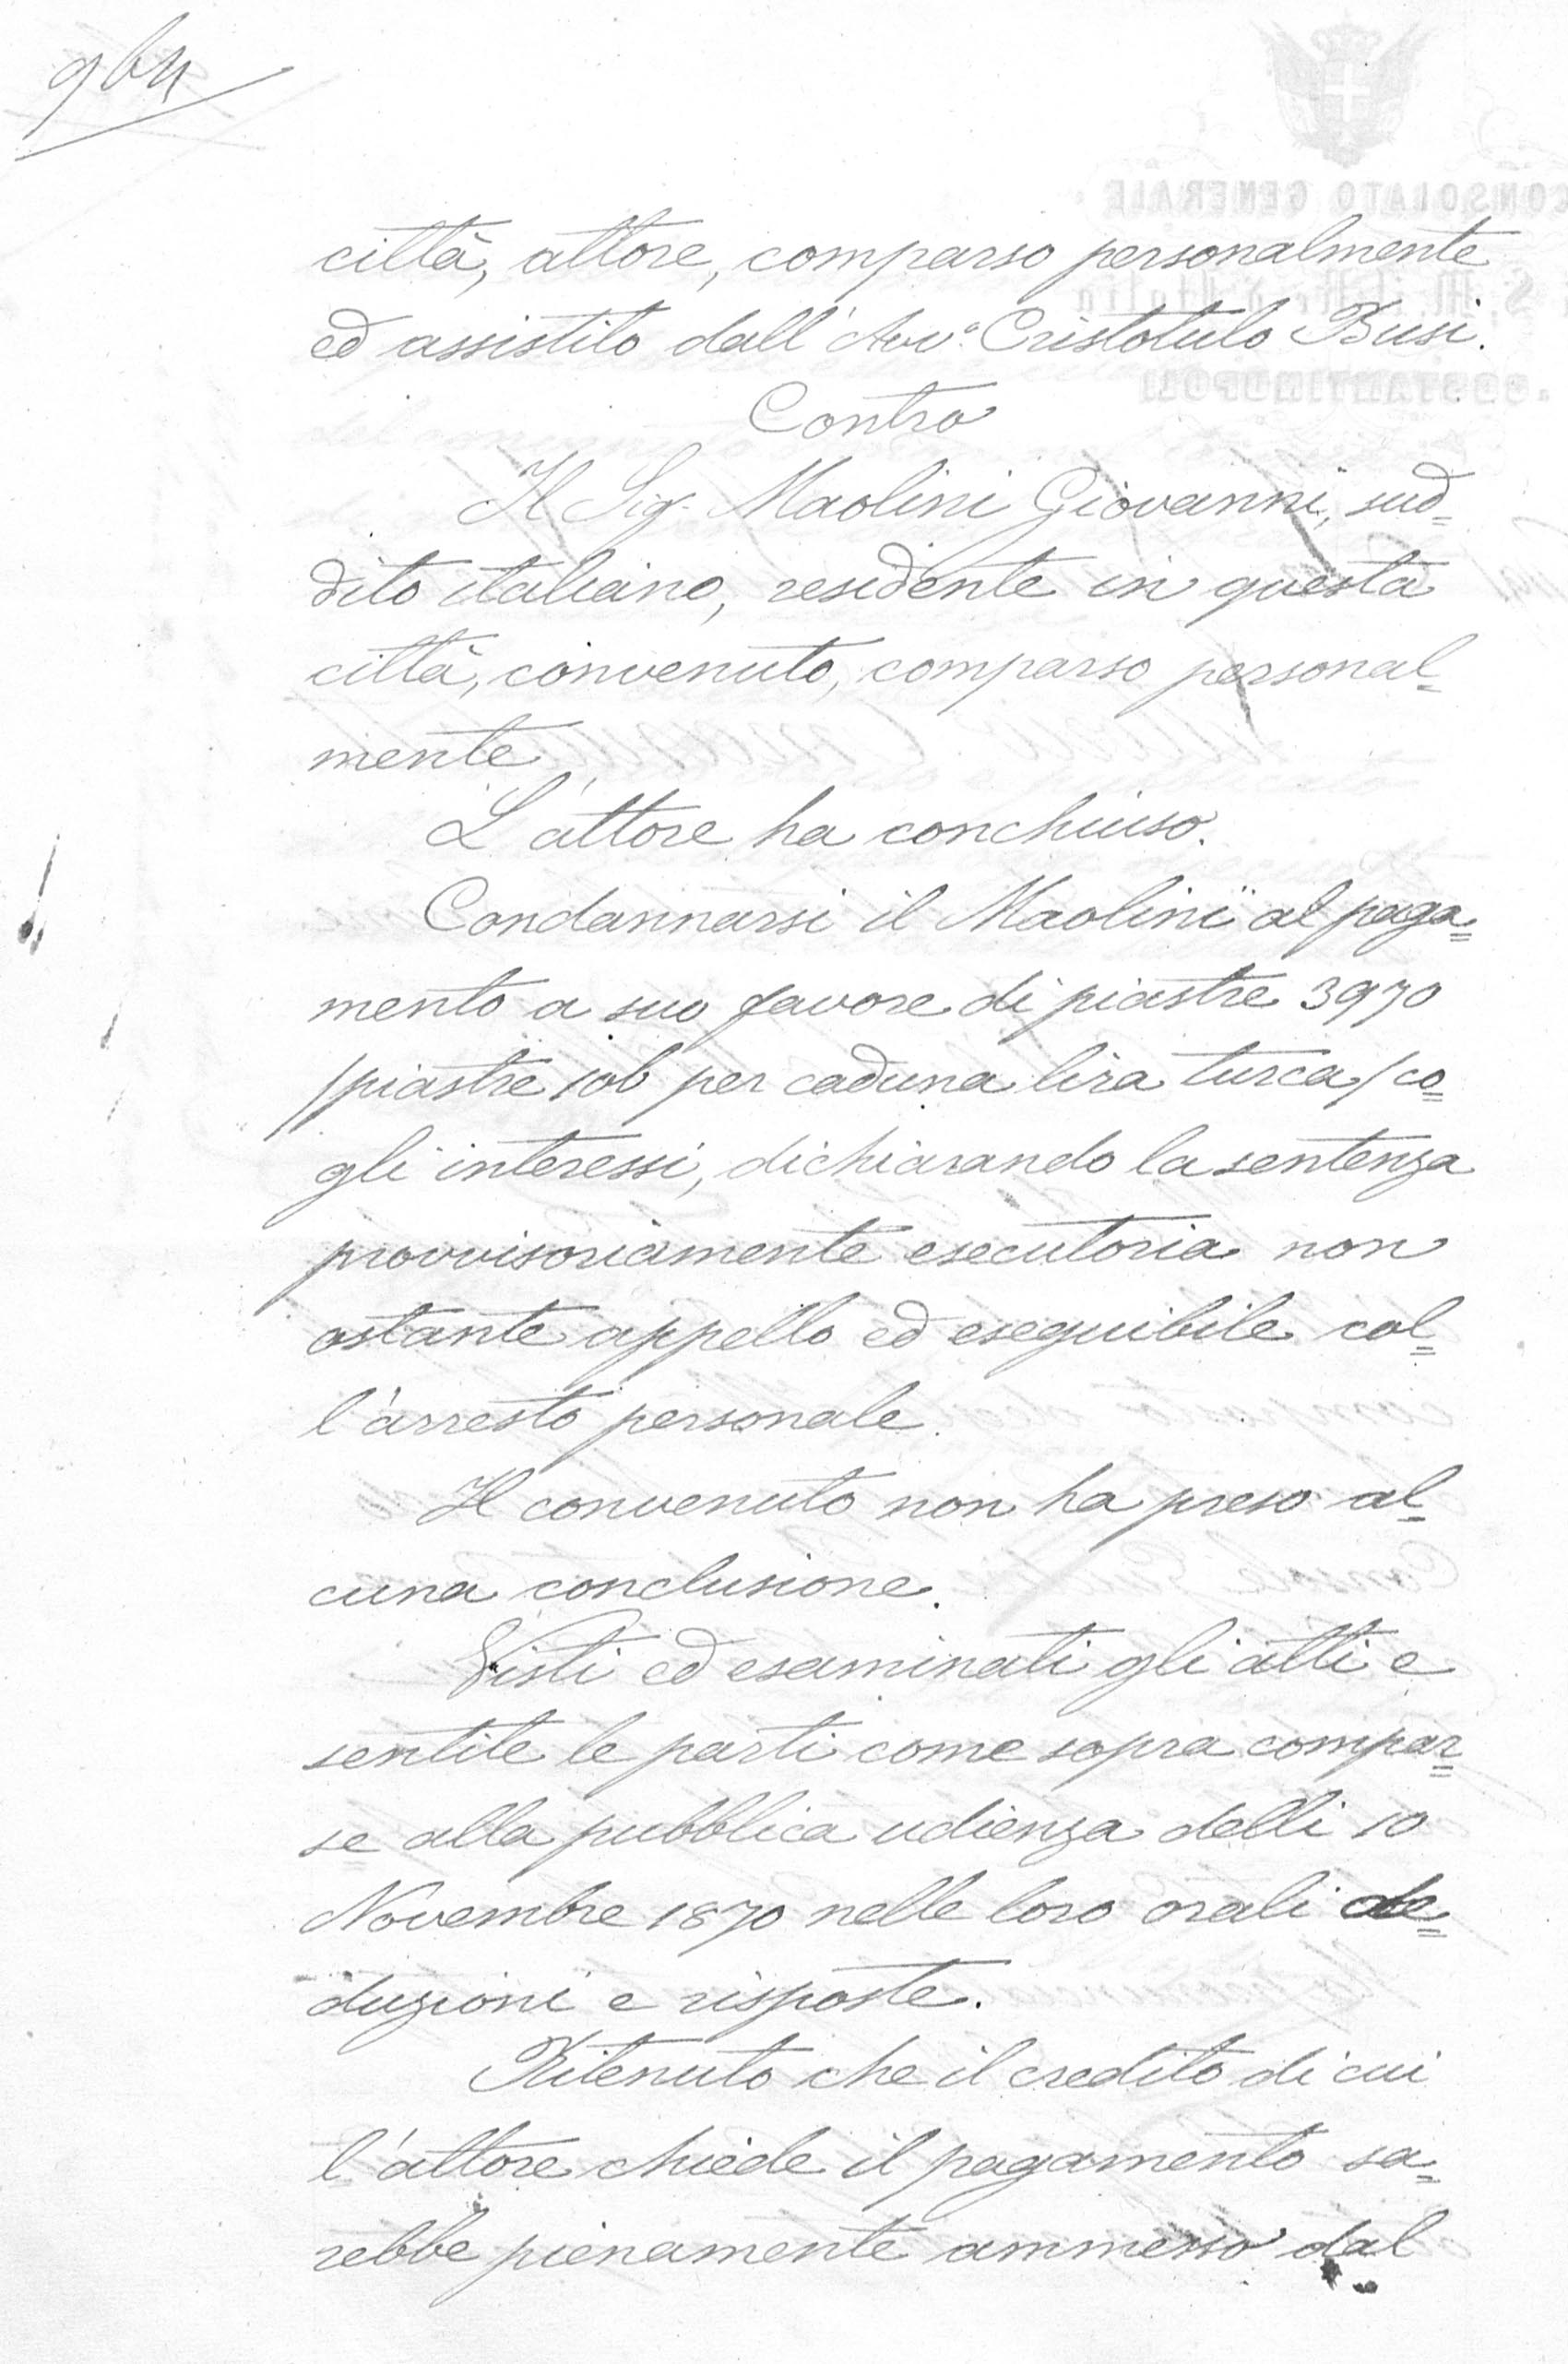 città, attore, comparso personalmente
ed assistito dall'Avv.º Cristotulo Busi.
Contro
Il Sig. Maolini Giovanni, sud=
dito italiano, residente in questa
città, convenuto, comparso personal=
mente
L'attore ha conchiuso.
Condannarsi il Maolini al paga=
mento a suo favore di piastre 3970
/piastre 106 per caduna lira turca/ co=
gli interessi, dichiarando la sentenza
provvisoriamente esecutoria non
ostante appello ed eseguibile col=
l'arresto personale.
Il convenuto non ha preso al=
cuna conclusione.
Visti ed esaminati gli atti e
sentite le parti come sopra compar=
se alla pubblica udienza delli 10
Novembre 1870 nelle loro orali de=
duzioni e risposte.
Ritenuto che il credito di cui
l'attore chiede il pagamento sa=
rebbe pienamente ammesso dal
CONSOLATO GENERALE
COSTANTINOPOLI